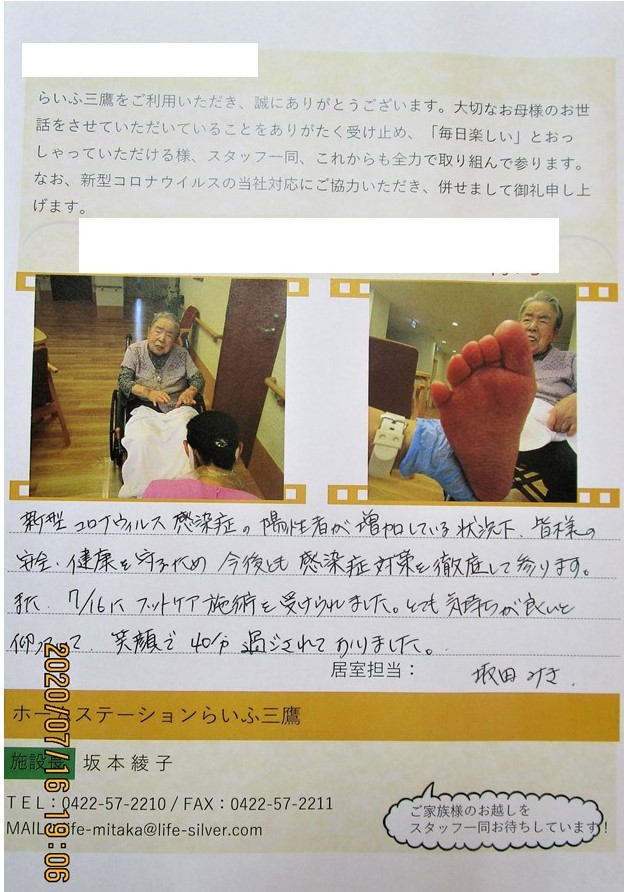 らいふ三鷹をご利用いただき、誠にありがとうございます。大切なお母様のお世
話をさせていただいていることをありがたく受け止め、「毎日楽しい」とおっ
しゃっていただける様、スタッフ一同、これからも全力で取り組んで参ります。
なお、新型コロナウイルスの当社対応にご協力いただき、併せまして御礼申し上
げます。
新型コロナウィルス感染症の陽性者が増加している状況下、皆様の
安全、健康を守るため今後とも感染症対策を徹底して参ります。
また、7/16にフットケア施術を受けられました。とても気持ちが良いと
仰って、笑顔で40分過ごされておりました。
居室担当：坂田みき.
ホームステーションらいふ三鷹
施設長 坂本綾子
TEL：0422-57-2210 / FAX：0422-57-2211
MAIL life-mitaka@life-silver.com
ご家族様のお越しを
スタッフ一同お待ちしています!
2020/07/16 19:06